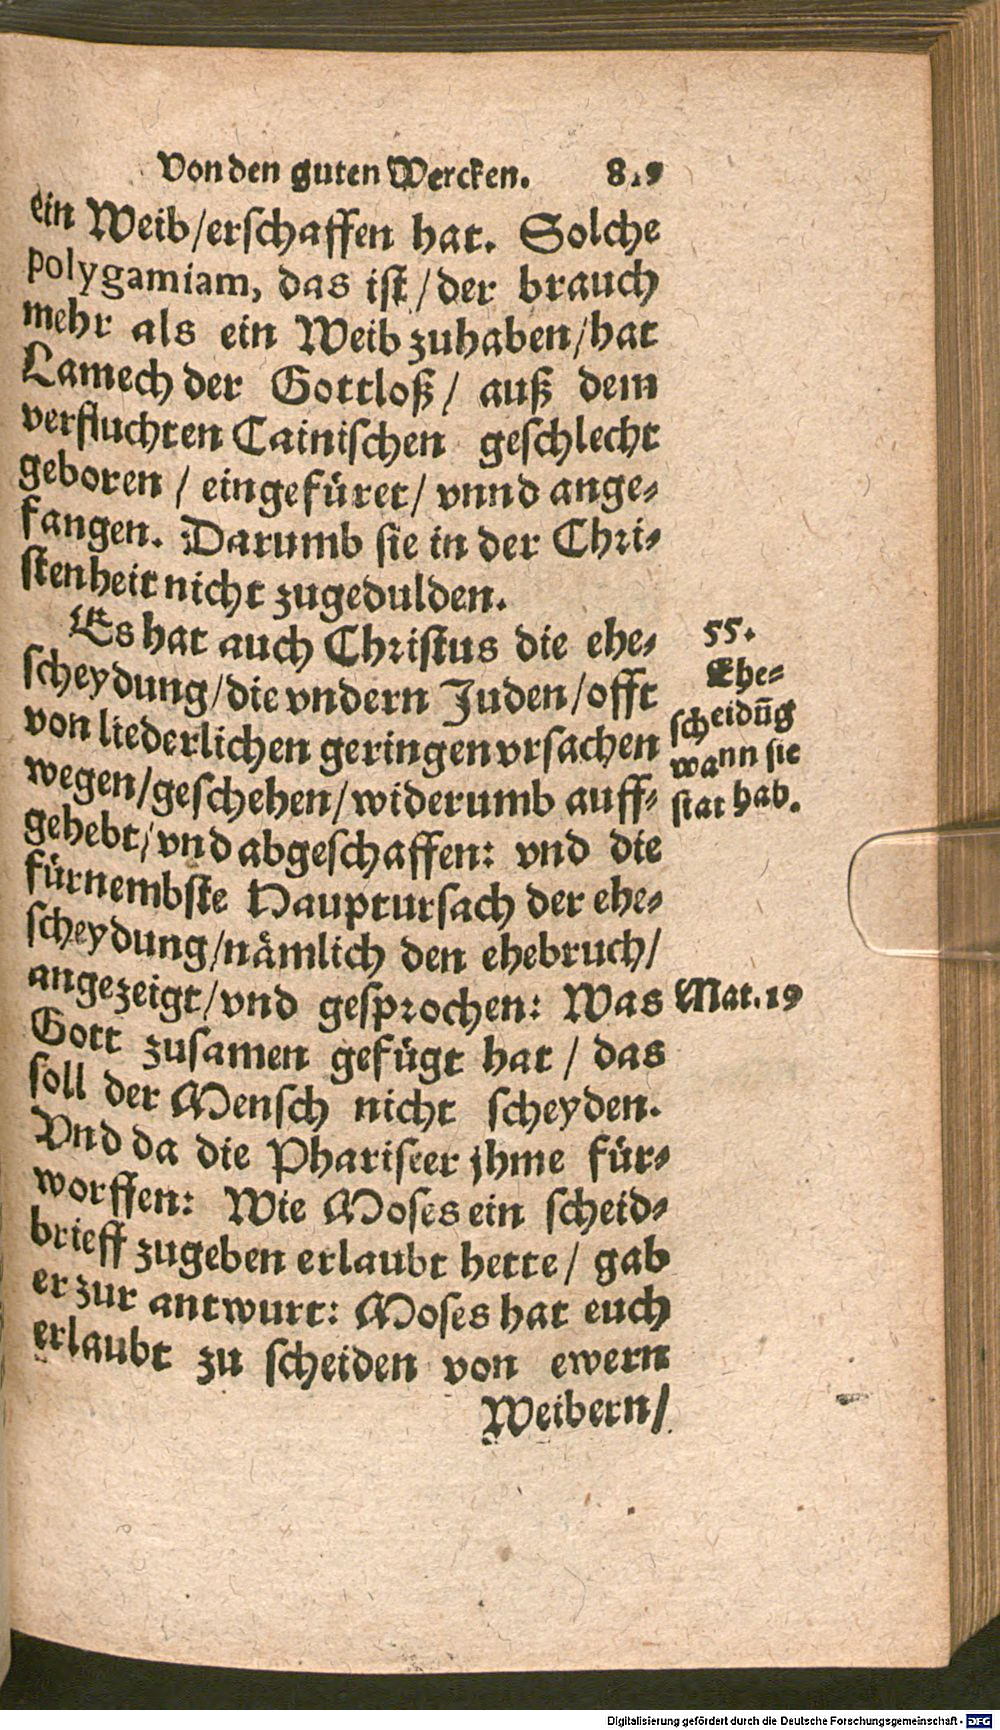 Von den guten Wercken. 819
ein Weib/erschaffen hat. Solche
polygamiam, das ist/der brauch
mehr als ein Weib zuhaben/hat
Lamech der Gottloß/ auß dem
verfluchten Cainischen geschlecht
geboren / eingefüret/ vnnd ange-
fangen. Darumb sie in der Chri-
stenheit nicht zugedulden.
Es hat auch Christus die ehe-
scheydung/die vndern Juden/offt
von liederlichen geringen vrsachen
wegen/geschehen/widerumb auff-
gehebt/vnd abgeschaffen: vnd die
fürnembste Hauptursach der ehe-
scheydung/nämlich den ehebruch/
angezeigt/vnd gesprochen: Was
Gott zusamen gefügt hat / das
soll der Mensch nicht scheyden.
Vnd da die Phariseer jhme für-
worffen: Wie Moses ein scheid-
brieff zugeben erlaubt hette/ gab
er zur antwurt: Moses hat euch
erlaubt zu scheiden von ewern
Weibern/
55.
Ehe-
scheidūg
wann sie
stat hab.
Mat. 19
Digitalisierung gefördert durch die Deutsche Forschungsgemeinschaft - DFG